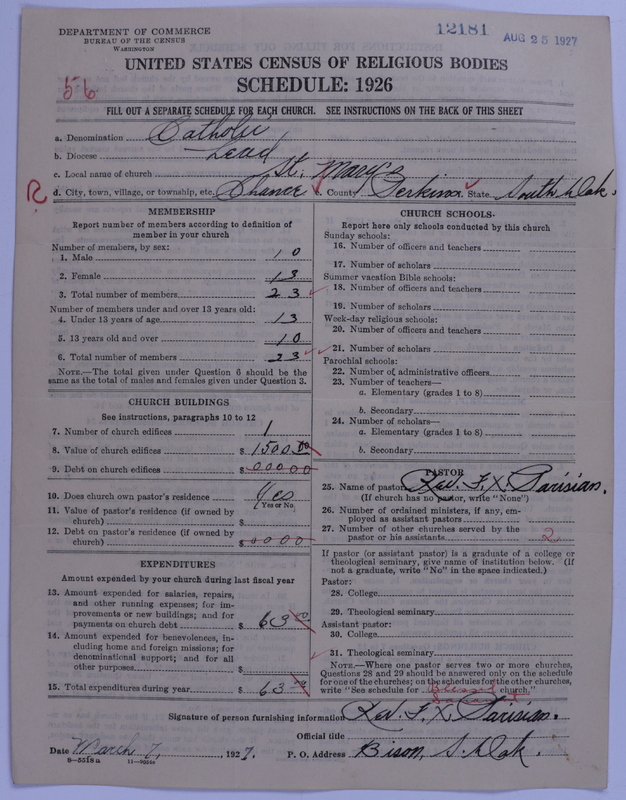 DEPARTMENT OF COMMERCE
BUREAU OF THE CENSUS
WASHINGTON
12181
AUG 25 1927
56
UNITED STATES CENSUS OF RELIGIOUS BODIES
SCHEDULE: 1926
FILL OUT A SEPARATE SCHEDULE FOR EACH CHURCH. SEE INSTRUCTIONS ON THE BACK OF THIS SHEET
a. Denomination Catholic
b. Diocese Lead
c. Local name of church St. Mary's
R
d. City, town, village, or township, etc. Chance e. County Perkins State South Dak.
MEMBERSHIP
Report number of members according to definition of member in your church
Number of members, by sex:
1. Male 10
2. Female 13
3. Total number of members 23
Number of members under and over 13 years old:
4. Under 13 years of age 13
5. 13 years old and over 10
6. Total number of members 23
NOTE.—The total given under Question 6 should be the
same as the total of males and females given under Question 3.
CHURCH BUILDINGS
See instructions, paragraphs 10 to 12
7. Number of church edifices 1
8. Value of church edifices $ 1500 00
9. Debt on church edifices $ 00000
10. Does church own pastor's residence Yes
(Yes or No)
11. Value of pastor's residence (if owned by
church) $
12. Debt on pastor's residence (if owned by
church) $ 0000
EXPENDITURES
Amount expended by your church during last fiscal year
13. Amount expended for salaries, repairs,
and other running expenses; for im-
provements or new buildings; and for
payments on church debt $ 63 00
14. Amount expended for benevolences, in-
cluding home and foreign missions; for
denominational support; and for all
other purposes $
15. Total expenditures during year $ 63
CHURCH SCHOOLS
Report here only schools conducted by this church
Sunday schools:
16. Number of officers and teachers
17. Number of scholars
Summer vacation Bible schools:
18. Number of officers and teachers
19. Number of scholars
Week-day religious schools:
20. Number of officers and teachers
21. Number of scholars
Parochial schools:
22. Number of administrative officers
23. Number of teachers—
a. Elementary (grades 1 to 8)
b. Secondary
24. Number of scholars—
a. Elementary (grades 1 to 8)
b. Secondary
PASTOR
25. Name of pastor Rev. F. X. Parisian.
(If church has no pastor, write "None")
26. Number of ordained ministers, if any, em-
ployed as assistant pastors
27. Number of other churches served by the
pastor or his assistants 2
If pastor (or assistant pastor) is a graduate of a college or
theological seminary, give name of institution below. (If
not a graduate, write "No" in the space indicated.)
Pastor:
28. College
29. Theological seminary
Assistant pastor:
30. College
31. Theological seminary
NOTE.—Where one pastor serves two or more churches,
Questions 28 and 29 should be answered only on the schedule
for one of the churches; on the schedules for the other churches,
write "See schedule for Blessed church."
Signature of person furnishing information Rev. F. X. Parisian.
Official title
Date March 7, 1927. P. O. Address Bison, S. Dak.
8—5518a